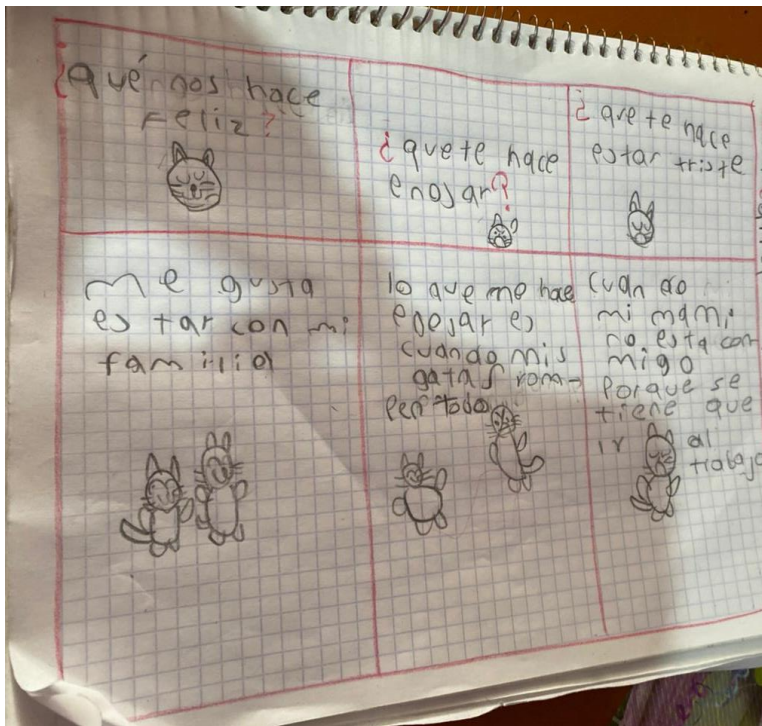 ¿Qué nos hace
Feliz?
¿que te hace
enojar?
¿que te hace
estar triste
Me gusta
estar con mi
familia
lo que me hae
enojar es
cuando mis
gatas rom-
pen todo
cuando
mi mami
no esta con
migo
Porque se
tiene que
ir al
trabajo